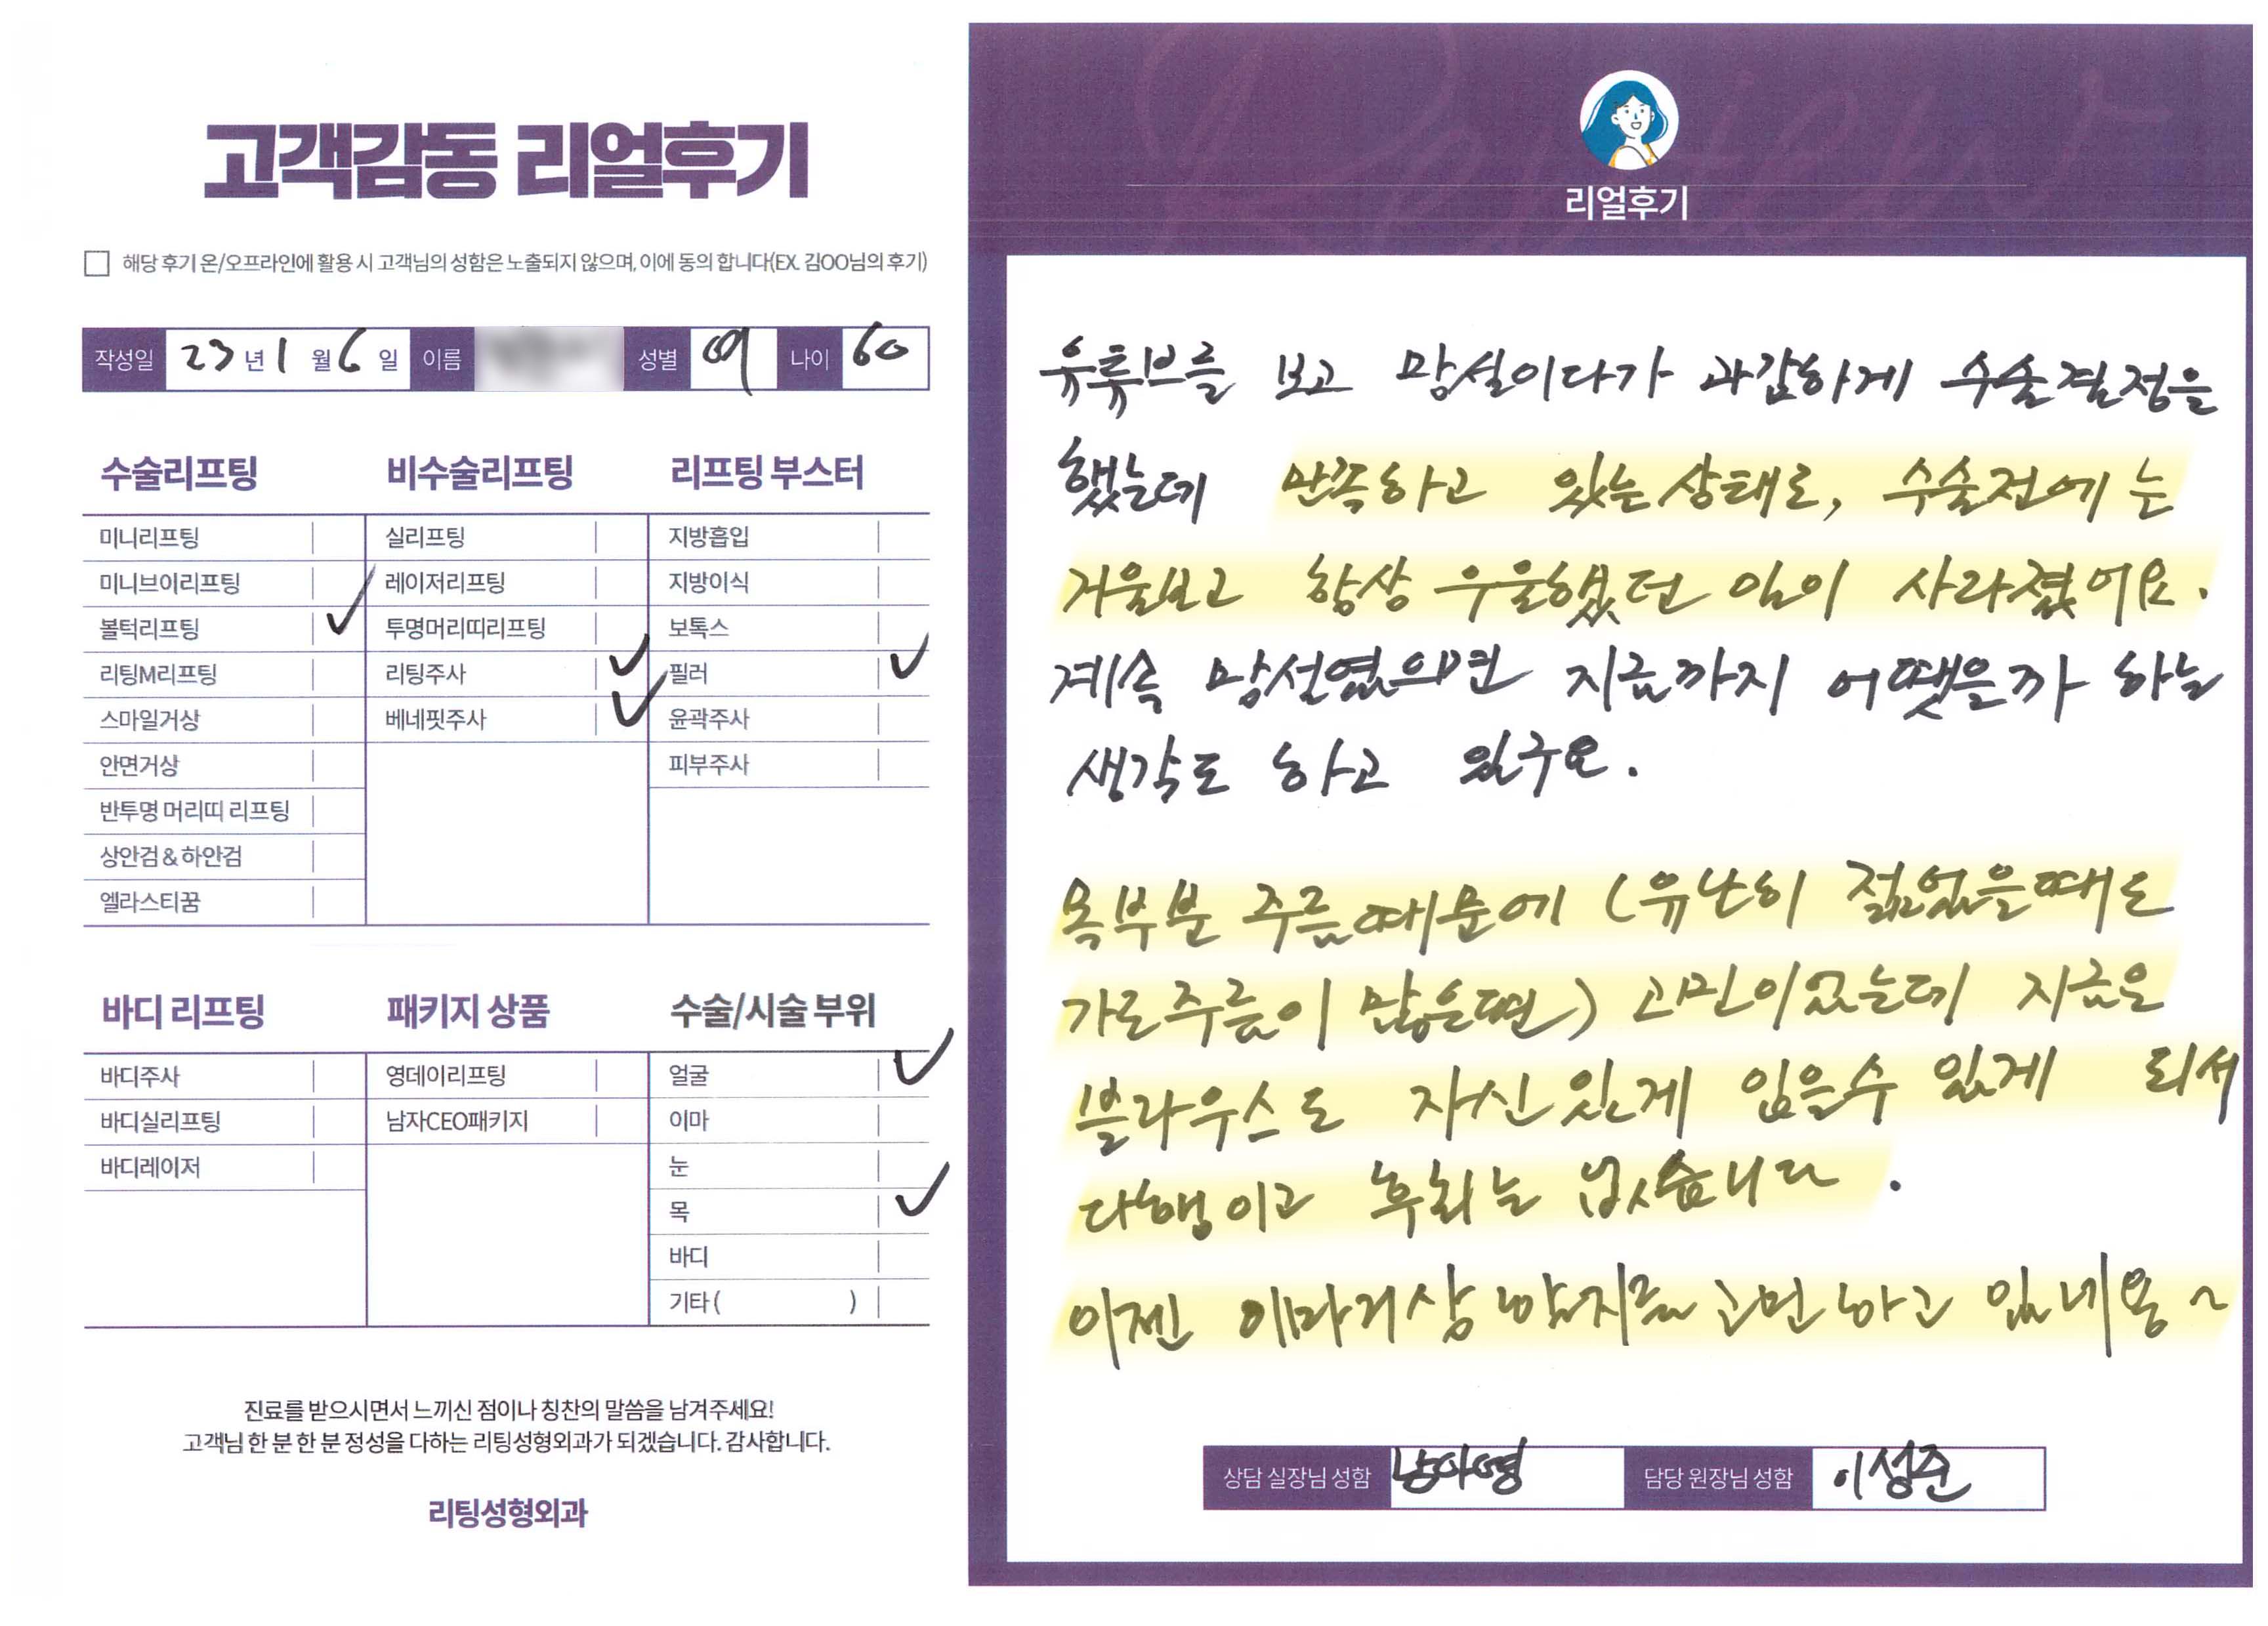 고객감동 리얼후기
해당 후기 온/오프라인에 활용 시 고객님의 성함은 노출되지 않으며, 이에 동의 합니다(EX. 김OO님의 후기)
작성일 23년 1월 6일 이름 성별 여 나이 60
수술리프팅
미니리프팅
미니브이리프팅
볼턱리프팅
리팅M리프팅
스마일거상
안면거상
반투명 머리띠 리프팅
상안검&하안검
엘라스티꿈
비수술리프팅
실리프팅
레이저리프팅
투명머리띠리프팅
리팅주사
베네핏주사
리프팅 부스터
지방흡입
지방이식
보톡스
필러
윤곽주사
피부주사
바디 리프팅
바디주사
바디실리프팅
바디레이저
패키지 상품
영데이리프팅
남자CEO패키지
수술/시술 부위
얼굴
이마
눈
목
바디
기타( )
진료를 받으시면서 느끼신 점이나 칭찬의 말씀을 남겨주세요!
고객님 한 분 한 분 정성을 다하는 리팅성형외과가 되겠습니다. 감사합니다.
리팅성형외과
리얼후기
유튜브를 보고 망설이다가 과감하게 수술결정을
했는데 만족하고 있는상태로, 수술전에는
거울보고 항상 우울했던 일이 사라졌어요.
계속 망설였으면 지금까지 어땟을까 하는
생각도 하고 있구요.
목부분 주름때문에 (유난히 젊었을때도
가로주름이 많은편) 고민이었는데 지금은
블라우스도 자신있게 입을수 있게 되서
다행이고 후회는 없습니다.
이젠 이마거상 할지를 고민하고 있네용~
상담 실장님 성함 남아영 담당 원장님 성함 이성준